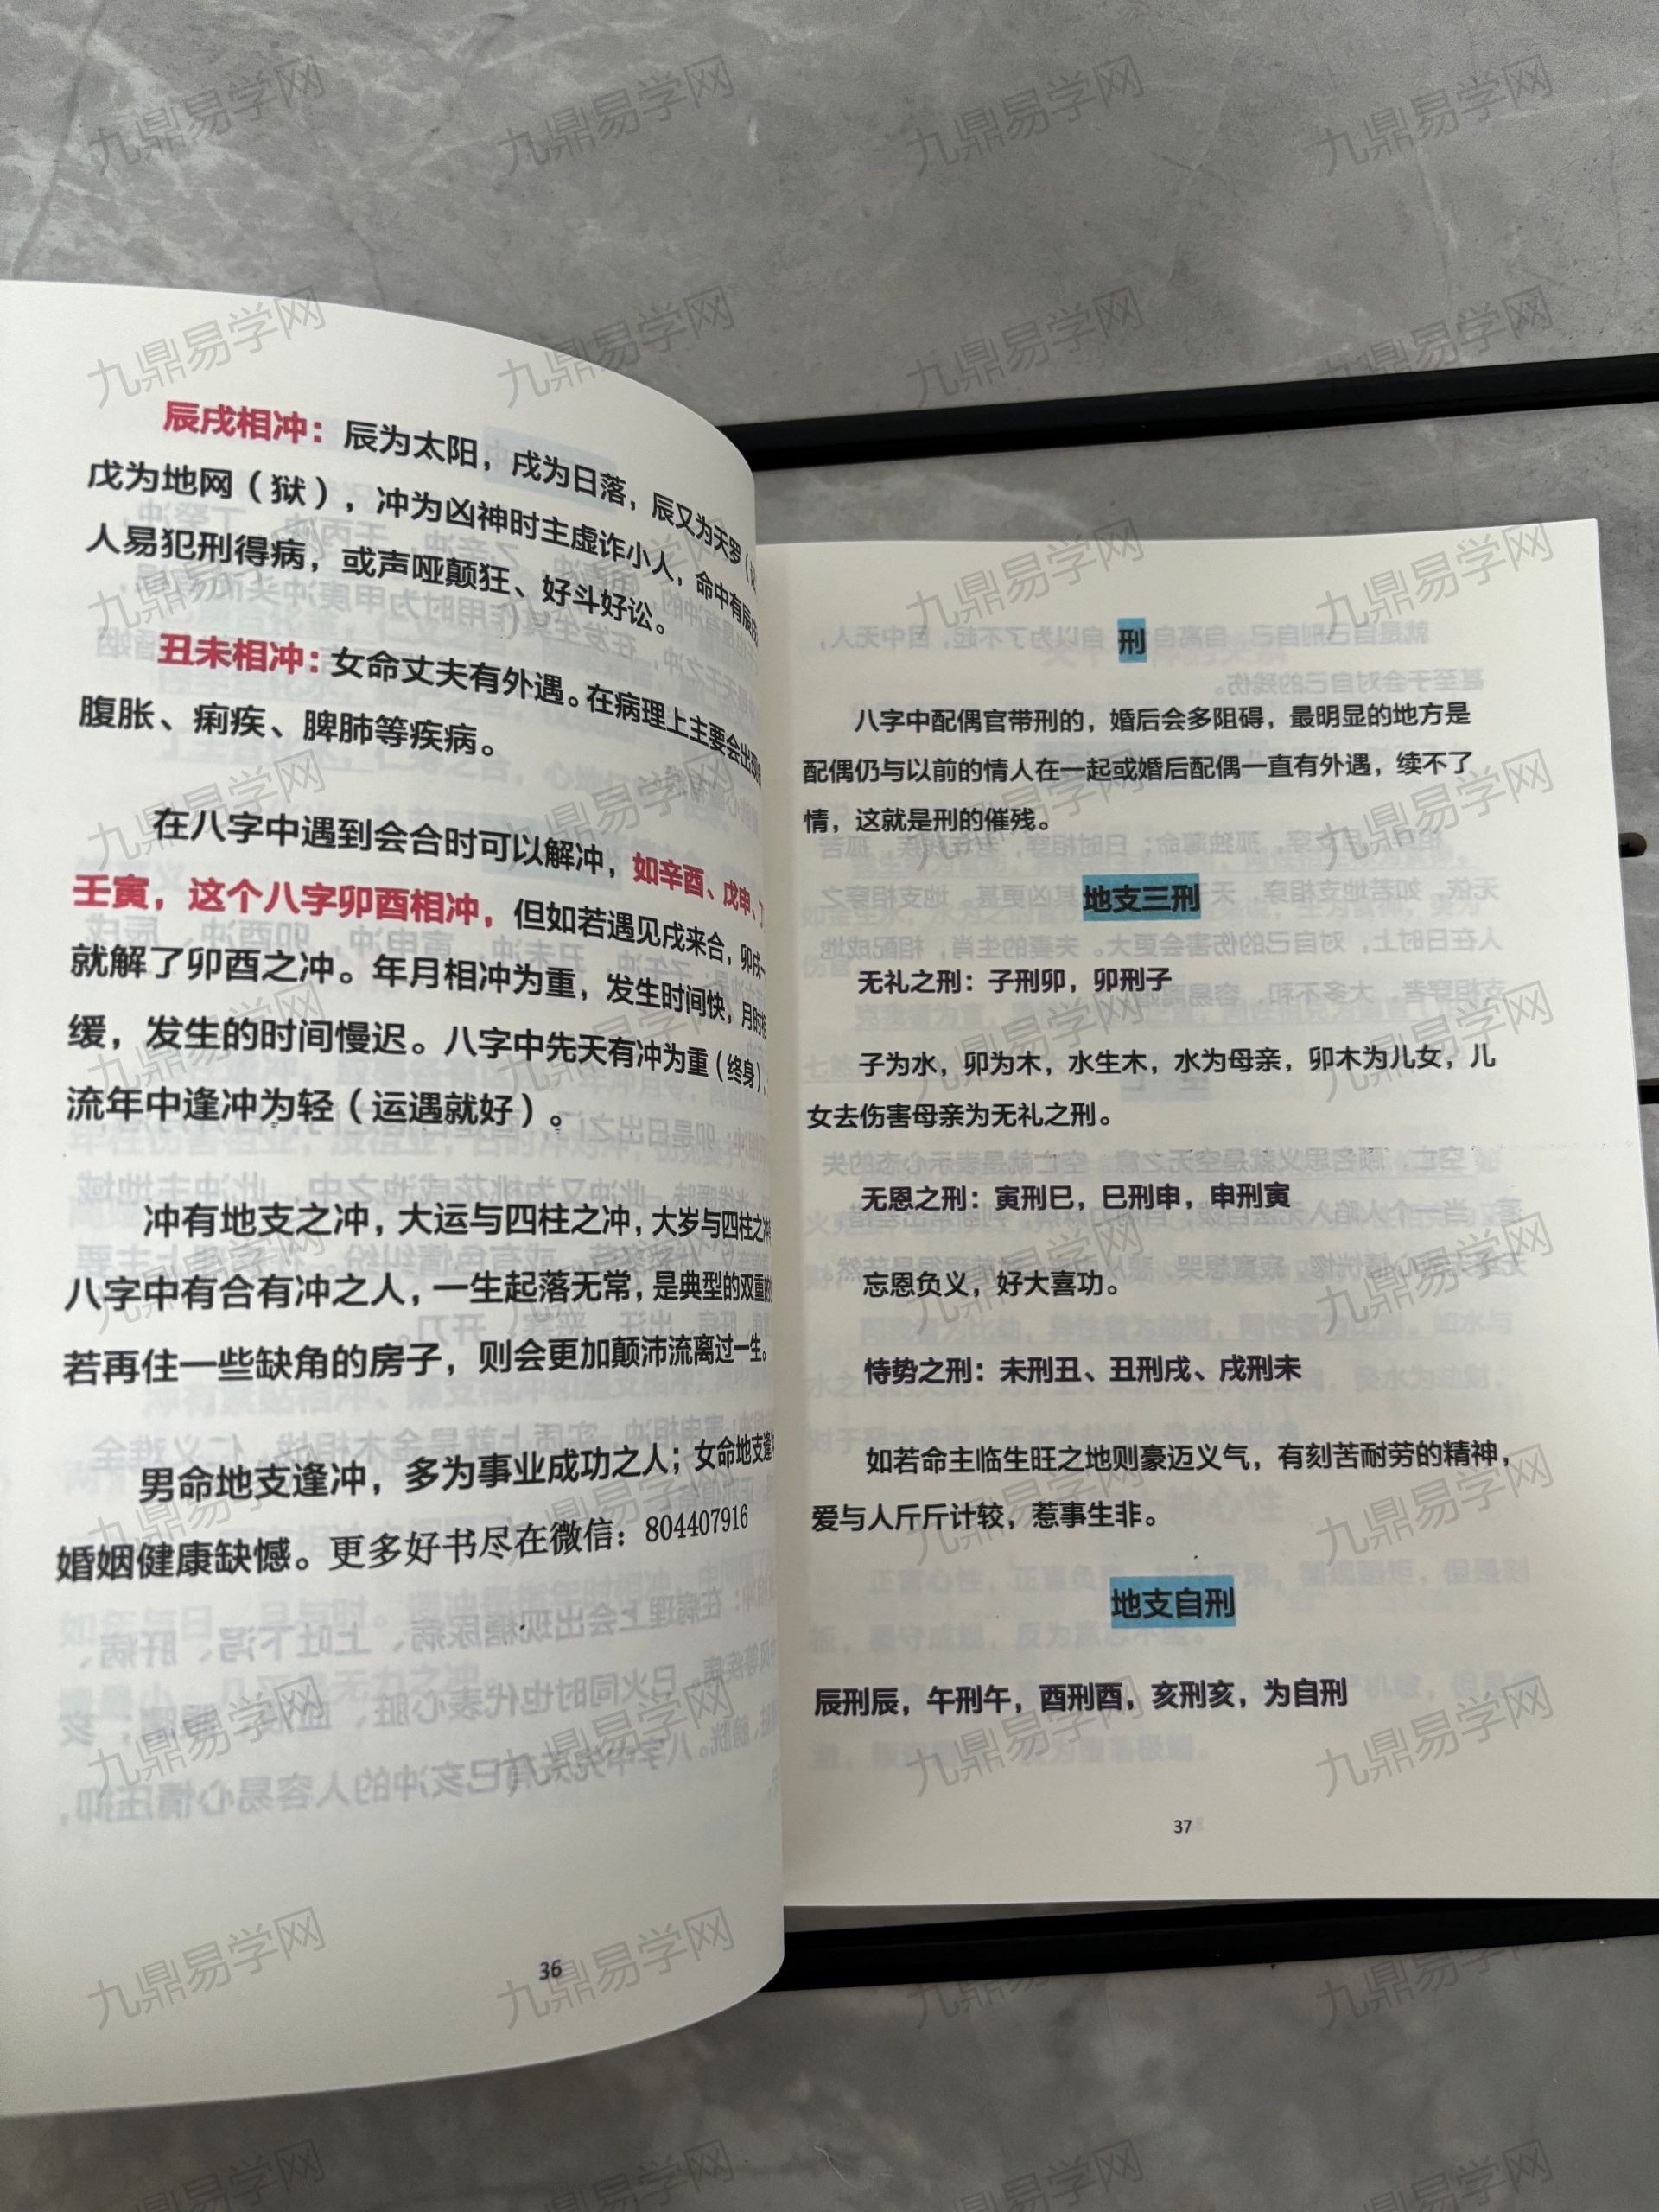 辰戌相冲：辰为太阳，戌为日落，辰又为天罗（
戊为地网（狱），冲为凶神时主虚诈小人，命中有辰戌
人易犯刑得病，或声哑颠狂、好斗好讼。
丑未相冲：女命丈夫有外遇。在病理上主要会出现
腹胀、痢疾、脾肺等疾病。
在八字中遇到会合时可以解冲，如辛酉、戊申、丁
壬寅，这个八字卯酉相冲，但如若遇见戌来合，卯戌一
就解了卯酉之冲。年月相冲为重，发生时间快，月时
缓，发生的时间慢迟。八字中先天有冲为重（终身），
流年中逢冲为轻（运遇就好）。
冲有地支之冲，大运与四柱之冲，大岁与四柱之冲
八字中有合有冲之人，一生起落无常，是典型的双重
若再住一些缺角的房子，则会更加颠沛流离过一生。
男命地支逢冲，多为事业成功之人；女命地支逢
婚姻健康缺憾。更多好书尽在微信：804407916
36
刑
八字中配偶官带刑的，婚后会多阻碍，最明显的地方是
配偶仍与以前的情人在一起或婚后配偶一直有外遇，续不了
情，这就是刑的催残。
地支三刑
无礼之刑：子刑卯，卯刑子
子为水，卯为木，水生木，水为母亲，卯木为儿女，儿
女去伤害母亲为无礼之刑。
无恩之刑：寅刑巳，巳刑申，申刑寅
忘恩负义，好大喜功。
恃势之刑：未刑丑、丑刑戌、戌刑未
如若命主临生旺之地则豪迈义气，有刻苦耐劳的精神，
爱与人斤斤计较，惹事生非。
地支自刑
辰刑辰，午刑午，酉刑酉，亥刑亥，为自刑
37
九鼎易学网